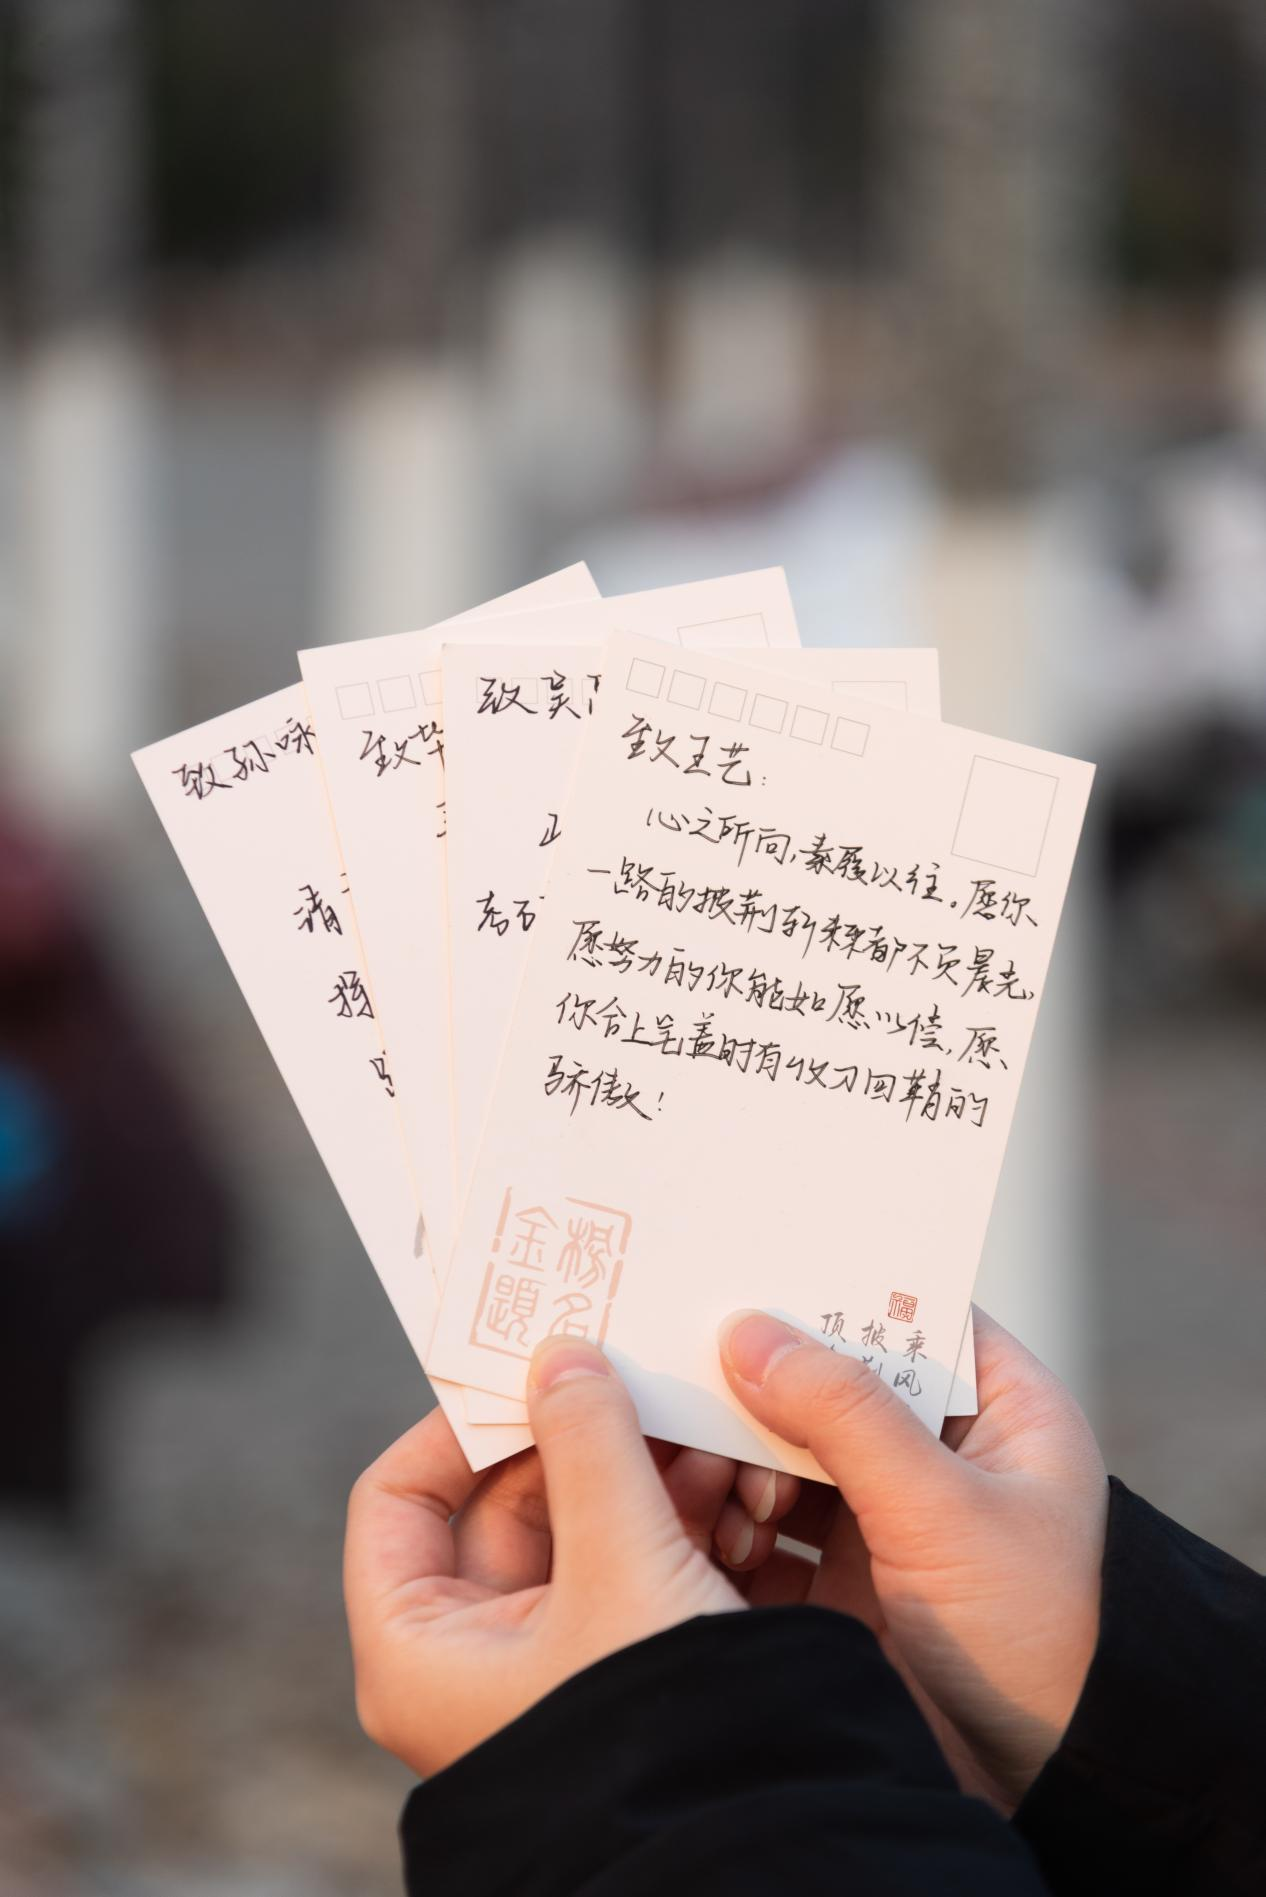 致孙咏
清
致
致吴
致王艺:
心之所向,素履以往。愿你
一路的披荆斩棘都不负晨光,
愿努力的你能如愿以偿,愿
你合上笔盖时有收刀回鞘的
骄傲!
金榜
题名
福
乘风
披荆
顶